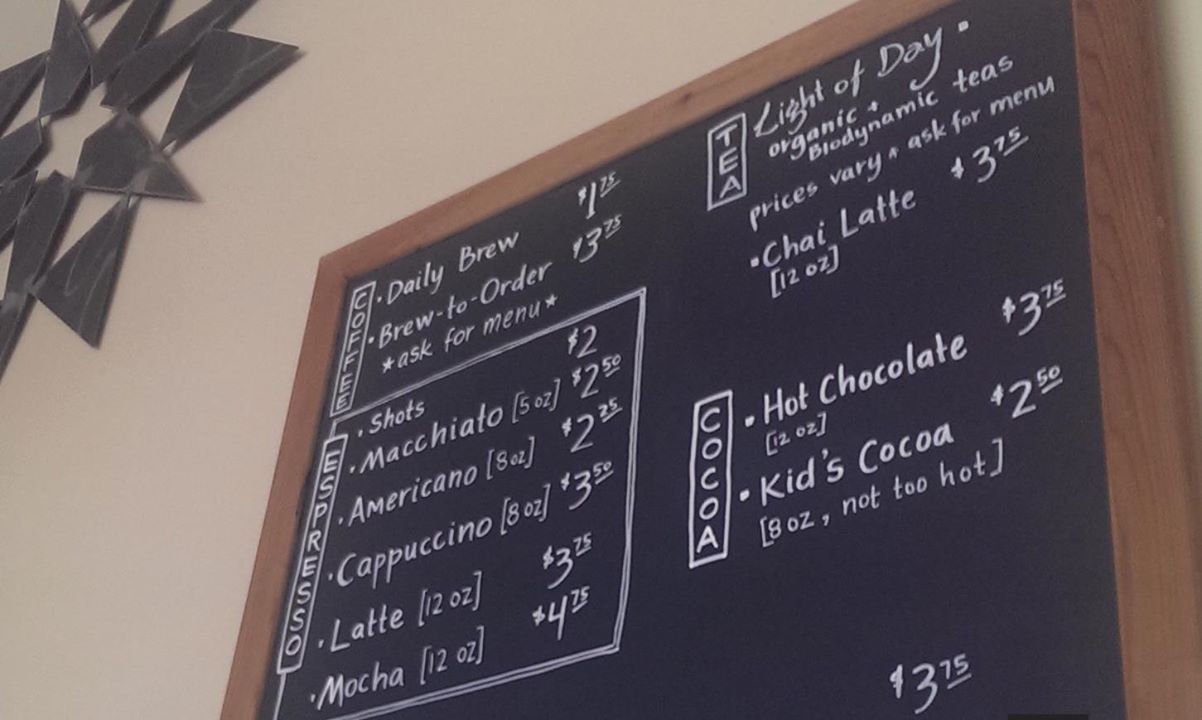 COFFEE
• Daily Brew $1.75
• Brew-to-Order $3.75
*ask for menu*
ESPRESSO
• Shots $2
• Macchiato [5 oz] $2.50
• Americano [8oz] $2.25
• Cappuccino [8 oz] $3.50
• Latte [12 oz] $3.75
• Mocha [12 oz] $4.75
TEA
Light of Day •
organic +
Biodynamic teas
prices vary * ask for menu
• Chai Latte $3.75
[12 oz]
COCOA
• Hot Chocolate $3.75
[12 oz]
• Kid's Cocoa $2.50
[8 oz, not too hot]
$3.75